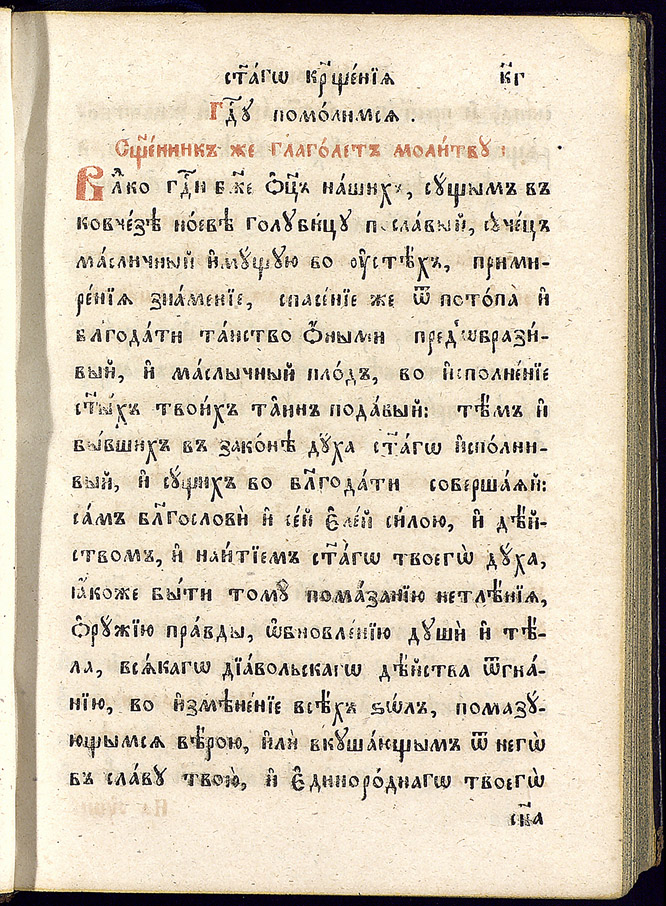 ст҃а́гѡ кр҃ще́нїѧ к҃г
Гдⷭ҇у помо́лимсѧ .
Сщ҃е́нникъ же глаго́летъ моли́тву :
Влⷣко гдⷭ҇и бж҃е ѻ҆ц҃ъ на́шихъ, су́щымъ въ
ковче́зѣ но́евѣ голуби́цу посла́вый, су́чецъ
ма́сличный и҆му́щую во ᲂу҆стѣ́хъ, прими-
ре́нїѧ зна́менїе, спасе́нїе же ѿ пото́па и҆
блг҃ода́ти та́инство ѻ҆́ными предъѡбрази́-
вый, и҆ ма́слычный пло́дъ, во и҆сполне́нїе
ст҃ы́хъ твои́хъ та̑инъ пода́вый: тѣ́мъ и҆
бы́вшихъ въ зако́нѣ дх҃а ст҃а́гѡ и҆спо́лни-
вый, и҆ су́щихъ во блг҃ода́ти соверша́ѧй:
са́мъ блг҃ословѝ и҆ се́й є҆ле́й си́лою, и҆ дѣ́й-
ствомъ, и҆ наи́тїемъ ст҃а́гѡ твоегѡ̀ дх҃а,
ꙗ҆́коже бы́ти тому̀ пома́занїю нетлѣ́нїѧ,
ѻ҆ру́жїю пра́вды, ѡ҆бновле́нїю душѝ и҆ тѣ́-
ла, всѧ́кагѡ дїа́вольскагѡ дѣ́йства ѿгна́-
нїю, во и҆змѣне́нїе всѣ́хъ ѕѡ́лъ, помазу́-
ющымсѧ вѣ́рою, и҆лѝ вкуша́ющымъ ѿ негѡ̀
въ сла́ву твою̀, и҆ є҆диноро́днагѡ твоегѡ̀
сн҃а